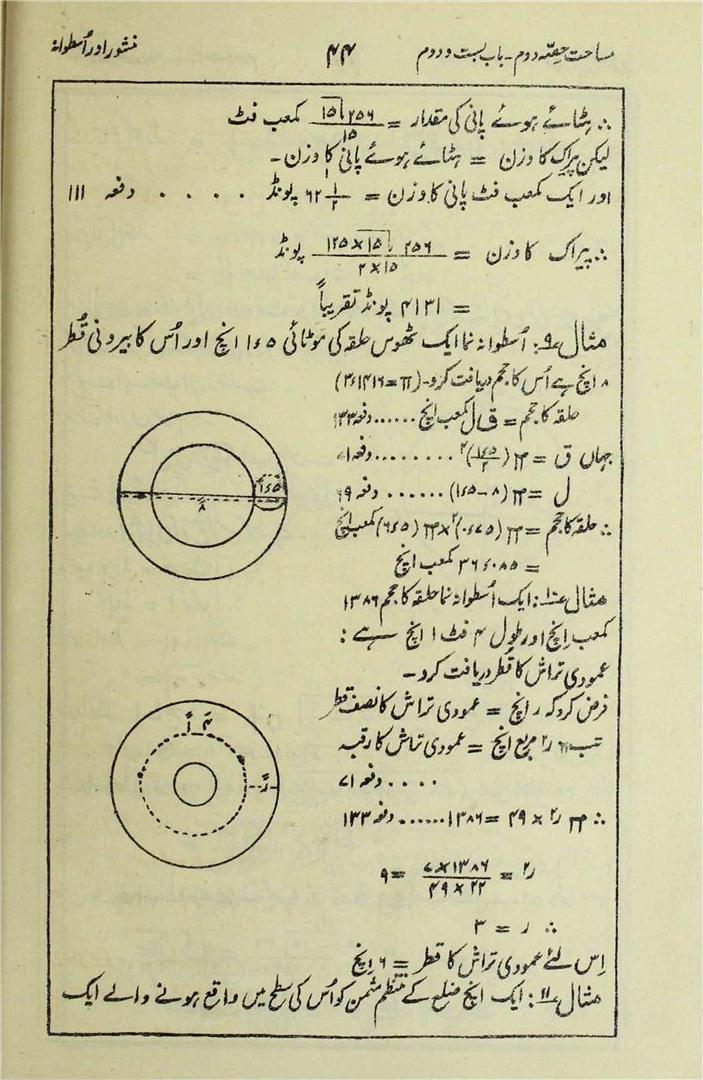 مساحت حصّہ دوم - باب بست و دوم ۴۴ منشور اور اُسطوانہ
∴ ہٹائے ہوئے پانی کی مقدار = ۲۵۶√۱۵ / ۱۵ مکعب فٹ
لیکن پیراک کا وزن = ہٹائے ہوئے پانی کا وزن -
اور ایک مکعب فٹ پانی کا وزن = ۶۲ ۱/۲ پونڈ . . . . دفعہ ۱۱۱
∴ پیراک کا وزن = ۲۵۶√۱۵ × ۱۲۵ / ۱۵ × ۲ پونڈ
= ۴۱۳۱ پونڈ تقریباً
مثال ۹: اُسطوانہ نما ایک ٹھوس حلقہ کی موٹائی ۱ء۵ انچ اور اُس کا بیرونی قُطر
۸ انچ ہے اُس کا حجم دریافت کرو - (π = ۳ء۱۴۱۶)
حلقہ کا حجم = ق ل مکعب انچ ...... دفعہ ۱۳۳
جہاں ق = π (۱ء۵/۲)^۲ ........ دفعہ ۷۱
ل = π (۸ - ۱ء۵) ...... دفعہ ۶۹
∴ حلقہ کا حجم = π (۰ء۷۵)^۲ × π (۶ء۵) مکعب انچ
= ۳۶ء۰۸۵ مکعب انچ
۱ء۵
۸
مثال ۱۰: ایک اُسطوانہ نما حلقہ کا حجم ۱۳۸۶
مکعب اِنچ اور طول ۴ فٹ ۱ انچ ہے :
عمودی تراش کا قُطر دریافت کرو -
فرض کرو کہ ر انچ = عمودی تراش کا نصف قطر
تب π ر^۲ مربع انچ = عمودی تراش کا رقبہ
. . . . دفعہ ۷۱
∴ π ر^۲ × ۴۹ = ۱۳۸۶ ...... دفعہ ۱۳۳
ر^۲ = ۱۳۸۶ × ۷ / ۲۲ × ۴۹ = ۹
∴ ر = ۳
۴َ ۱ً
رً
اِس لئے عمودی تراش کا قطر = ۶ اِنچ
مثال ۱۱: ایک انچ ضلع کے منتظم مثمن کو اُس کی سطح میں واقع ہونے والے ایک